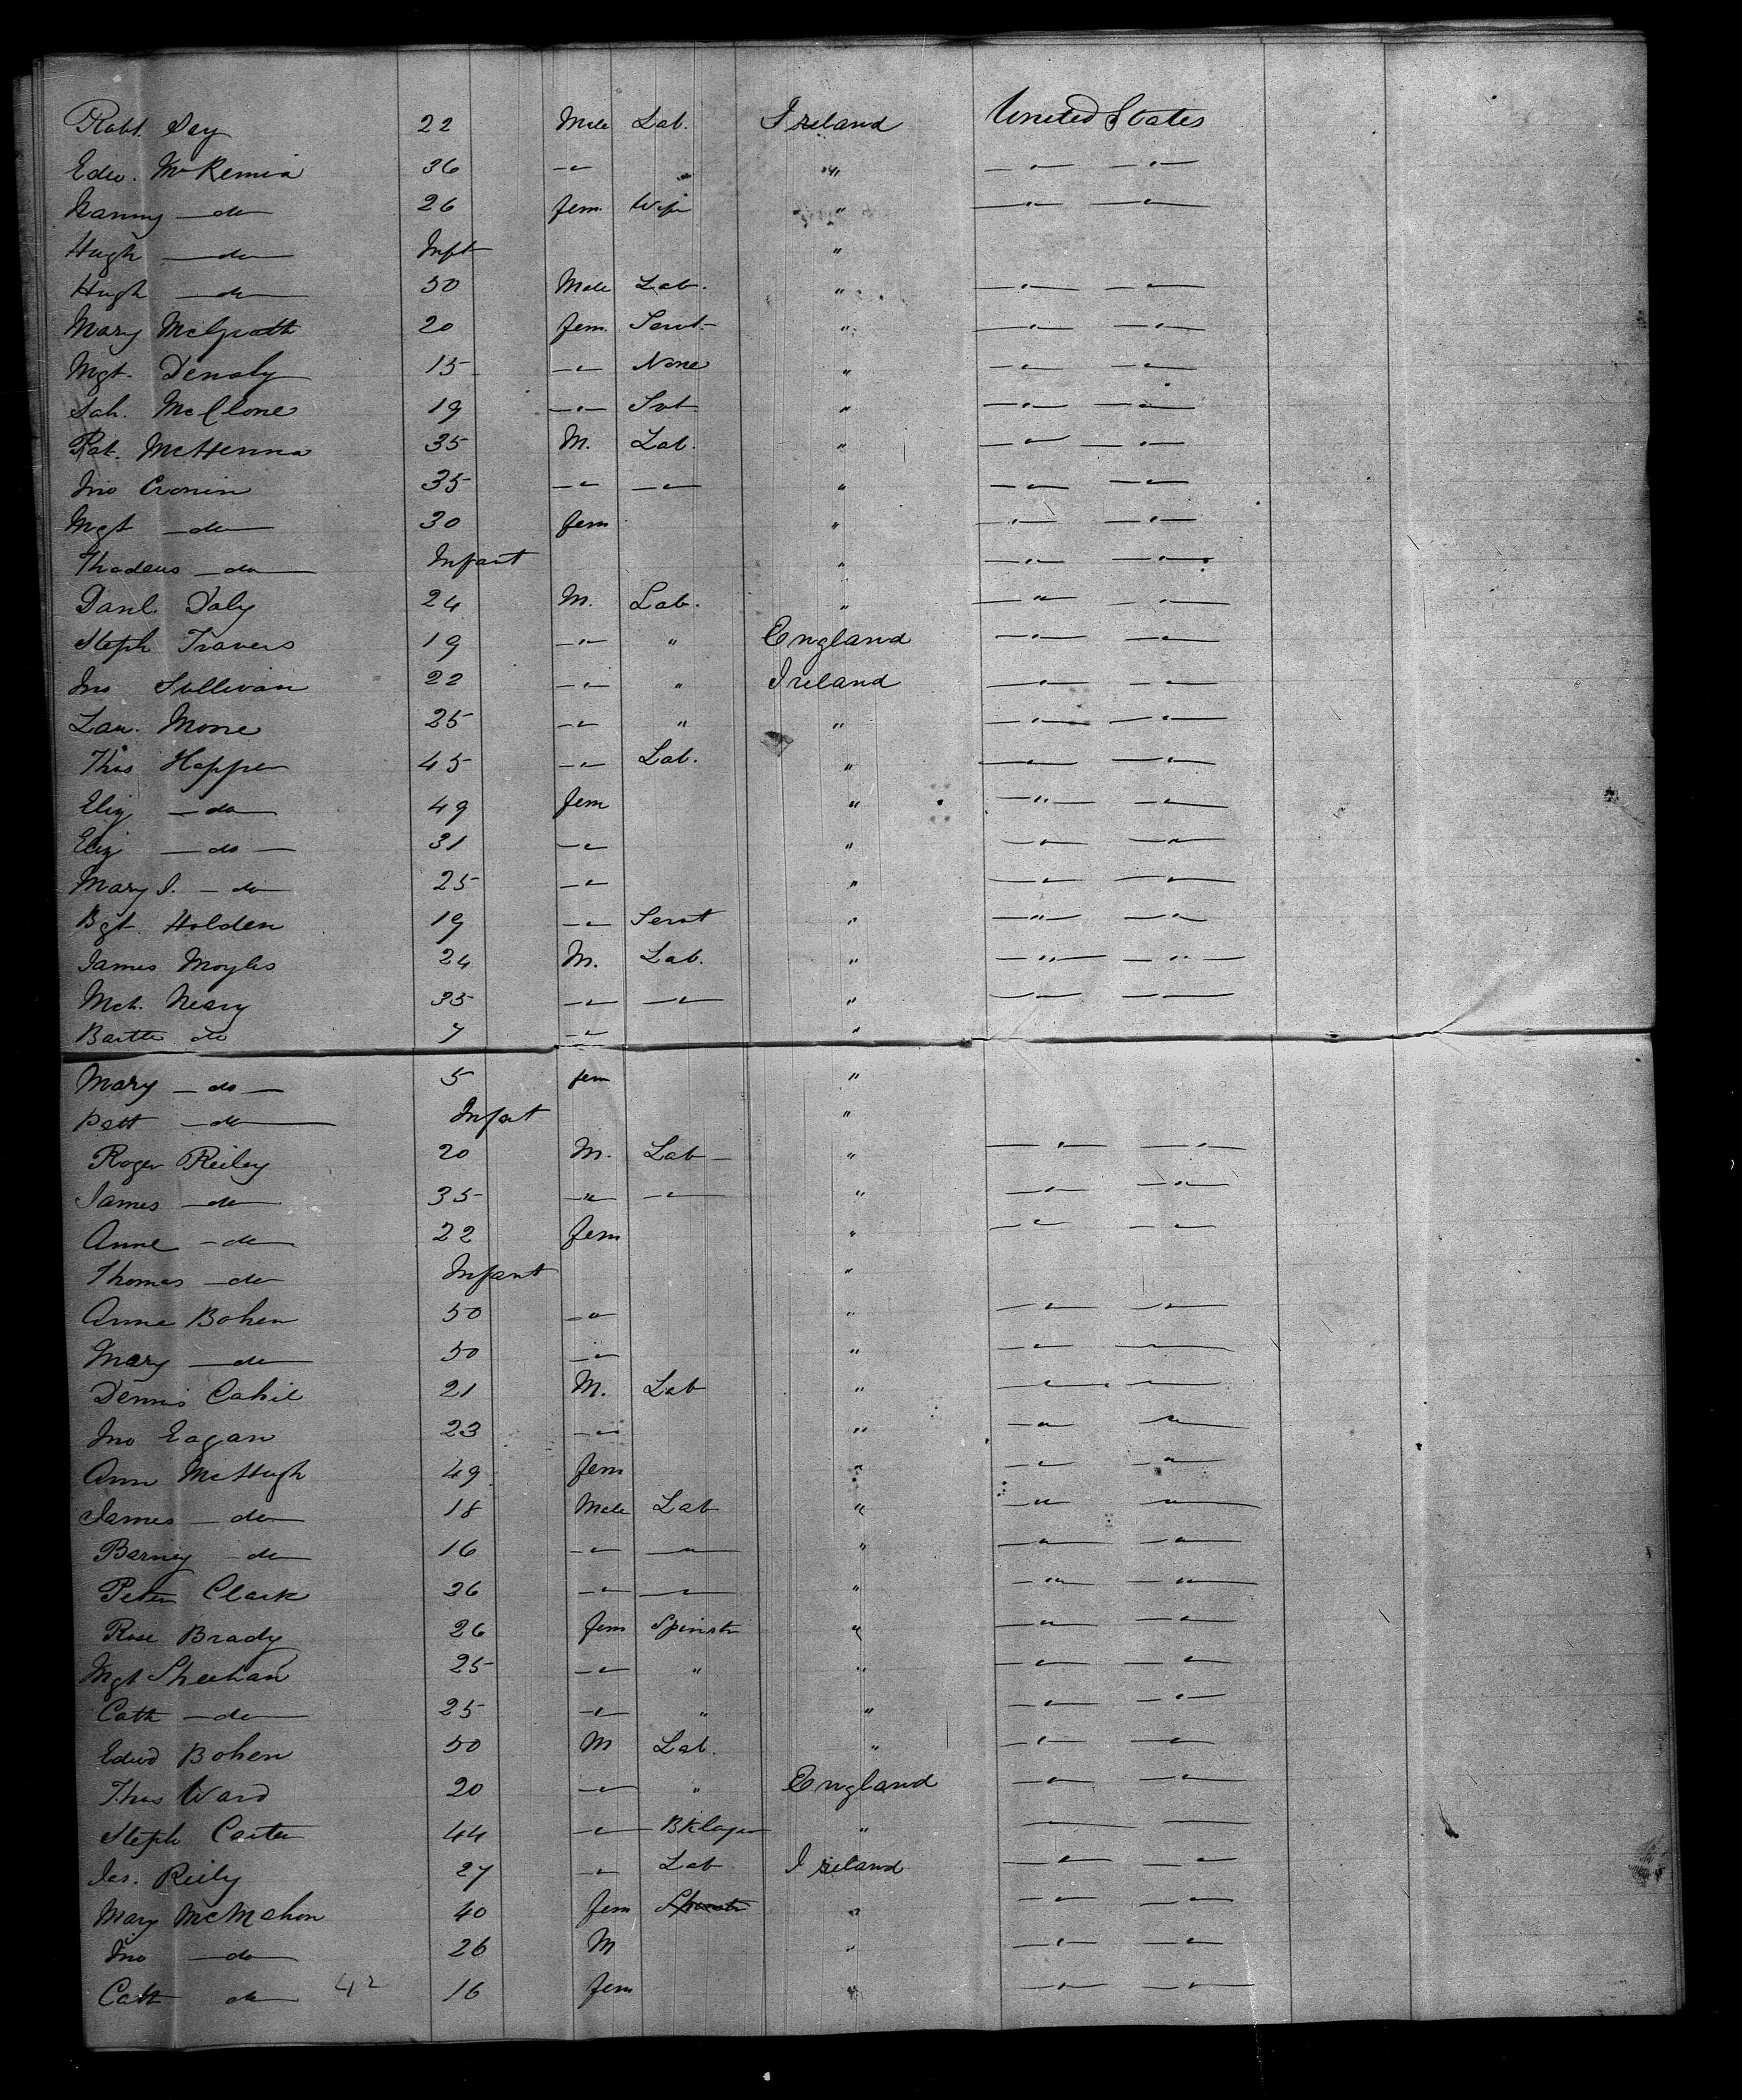 Robt. Day 22 Male Lab. Ireland United States
Edw. McKenna 36 " " " " "
Nanny do 26 fem. Wife " " "
Hugh do Inft "
Hugh do 50 Male Lab. " " "
Mary McGrath 20 fem. Servt. " " "
Mgt. Denoly 15 " None " " "
Sah. McClone 19 " Svt " " "
Pat. McKenna 35 M. Lab. " " "
Jno Cronin 35 " " " " "
Mgt do 30 fem " " "
Thadeus do Infant " " "
Danl. Daly 24 M. Lab. " " "
Steph Travers 19 " " England " "
Jno Sullivan 22 " " Ireland " "
Law. Mone 25 " " " " "
Thos Hopper 45 " Lab. " " "
Eliz do 49 fem " " "
Eliz do 31 " " " "
Mary J. do 25 " " " "
Bgt. Holden 19 " Servt " " "
James Moyles 24 M. Lab. " " "
Mch. Neary 35 " " " " "
Bartle do 7 " "
Mary do 5 fem "
Patt do Infant "
Roger Reiley 20 M. Lab " " "
James do 35 " " " " "
Anne do 22 fem " " "
Thomas do Infant "
Anne Bohen 50 " " " "
Mary do 50 " " " "
Dennis Cahil 21 M. Lab " " "
Jno Eagan 23 " " " "
Ann McHugh 49 fem " " "
James do 18 Male Lab " " "
Barney do 16 " " " " "
Peter Clark 26 " " " " "
Rose Brady 26 fem Spinstr " " "
Mgt Sheehan 25 " " " " "
Cath do 25 " " " " "
Edwd Bohen 50 M Lab. " " "
Thos Ward 20 " " England " "
Steph Carter 44 " Bklayer " " "
Jas. Reily 27 " Lab Ireland " "
Mary McMahon 40 fem " " "
Jno do 26 M " " "
Cath do 42 16 fem " " "